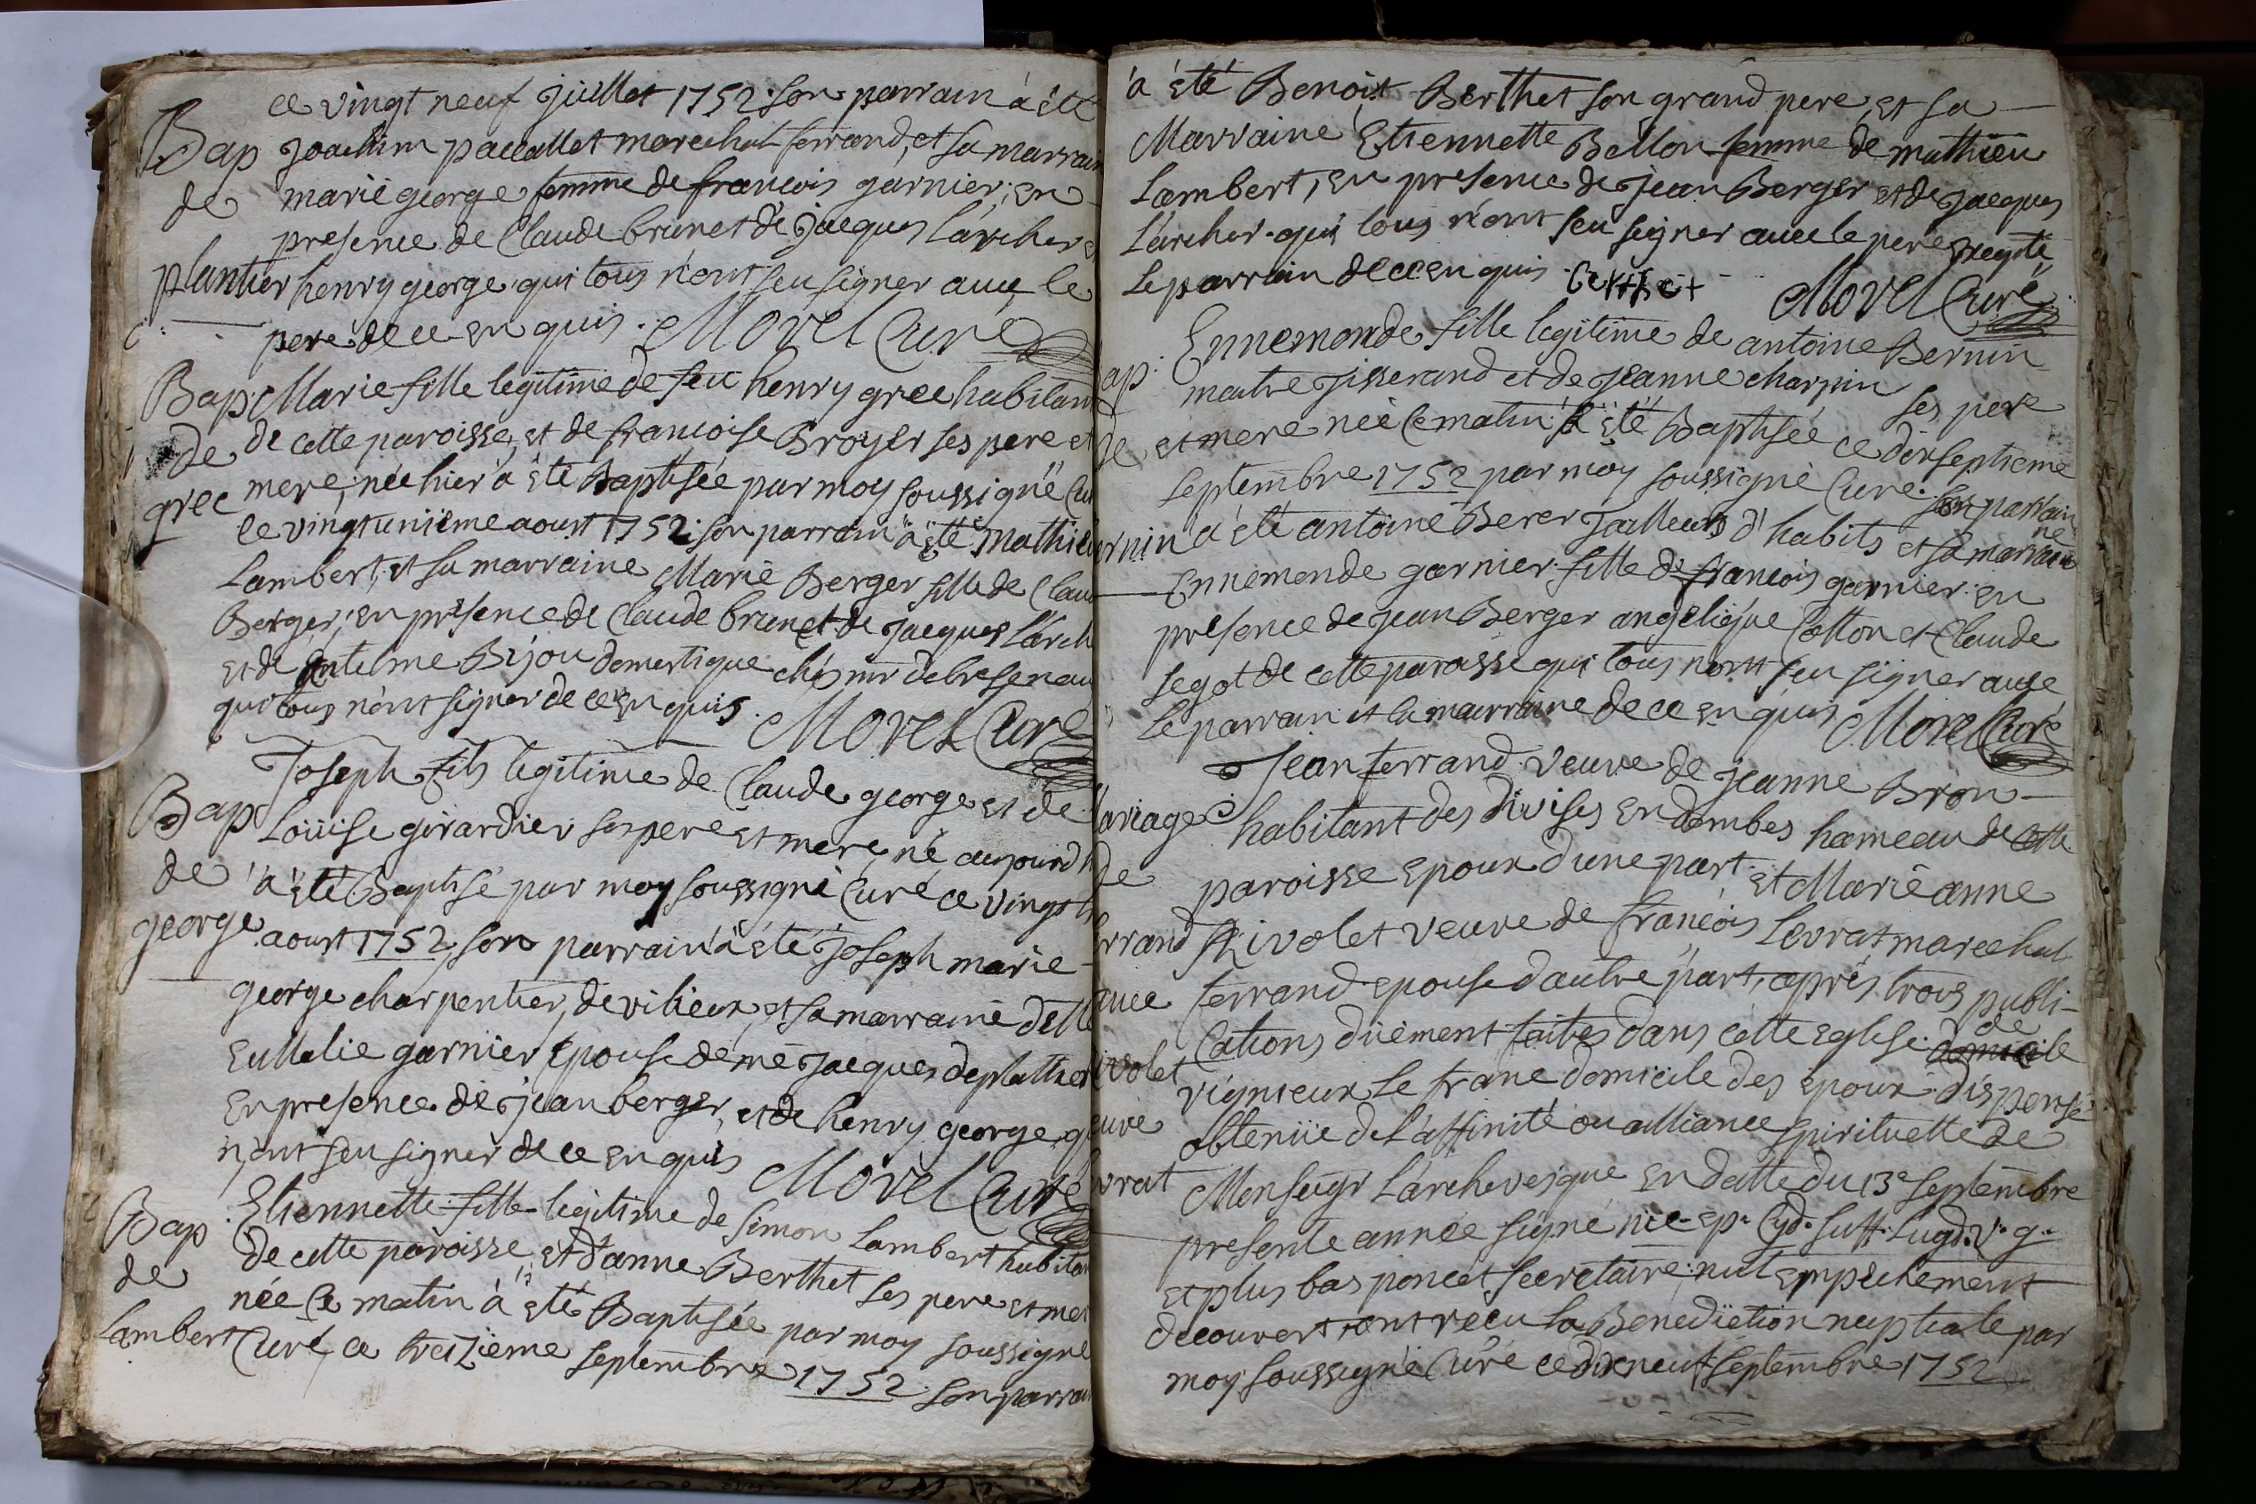 ce vingt neuf juillet 1752 son parrain a été
Bap joachim paccallet marechal ferrand, et sa marrain
de marie george femme de francois garnier, en
presence de Claude brunet de jacques Larcher et
plantier henry george qui tous n'ont seu signer avec le
pere de ce enquis. Morel Curé
Bap Marie fille legitime de feu henry gree habitant
de de cette paroisse, et de francoise Broyer ses pere et
gree mere, née hier a été Baptisée par moy soussigné Cu
ce vingtunième aoust 1752 son parrain a été mathieu
Lambert, et sa marraine Marie Berger fille de Clau
Berger, en presence de Claude brunet de jacques Larch
et de antelme Bijou domestique chés mr
qui tous n'ont signer de ce enquis. Morel Curé
Joseph fils legitime de Claude george et de
Bap Loüise girardier ses pere et mere, né aujourdh
de a été Baptisé par moy soussigné Curé ce vingt
george aoust 1752, son parrain a été joseph marie
george charpentier, de vilieux, et sa marraine delle
Eullalie garnier Epouse de me jacques deplattier
en presence de jean berger, et de henry george q
n'ont seu signer de ce enquis Morel Curé
Bap Etiennette fille legitime de simon Lambert habitan
de de cette paroisse, et d'anne Berthet ses pere et mer
née ce matin a été Baptisée par moy soussigné
Lambert Curé, ce treizième septembre 1752 son parrai
a été Benoit Berthet son grand pere, et sa
Marraine Etiennette Bellon femme de mathieu
Lambert, en presence de jean Berger et de jacques
Larcher qui tous n'ont seu signer avec le pere excepté
Le parrain de ce enquis Berthet Morel Curé
Ennemonde fille legitime de antoine Bernin
ap maitre tisserand et de jeanne charpin ses pere
de et mere née ce matin a été Baptisée ce dixseptieme
septembre 1752 par moy soussigné Curé. son parrain
rnin a été antoine Berer tailleur d'habits et sa marraine
Ennemonde garnier fille de francois garnier en
presence de jean Berger angelique Cotton et Claude
segot de cette paroisse qui tous n'ont seu signer avec
Le parrain et la marraine de ce enquis Morel Curé
Jean ferrand veuve de jeanne Bron
ariage habitant des divises en dombes hameau de cette
de paroisse epoux dune part et Marie anne
rrand Rivolet veuve de francois Levrat marechal
avec ferrand epouse d'autre part, après trois publi-
cations düement faites dans cette Eglise de
ivolet vignieux Le franc domicile des epoux dispense
euve obtenüe de L'affinité ou alliance spirituelle de
vrat Monseigr L'archevesque en datte du 13e septembre
presente année signé nic. ep. Cyd. suff. Lugd. v. g.
et plus bas poncet secretaire nul empechement
decouvert, ont recu la Benediction nuptiale par
moy soussigné Curé ce dix neuf septembre 1752